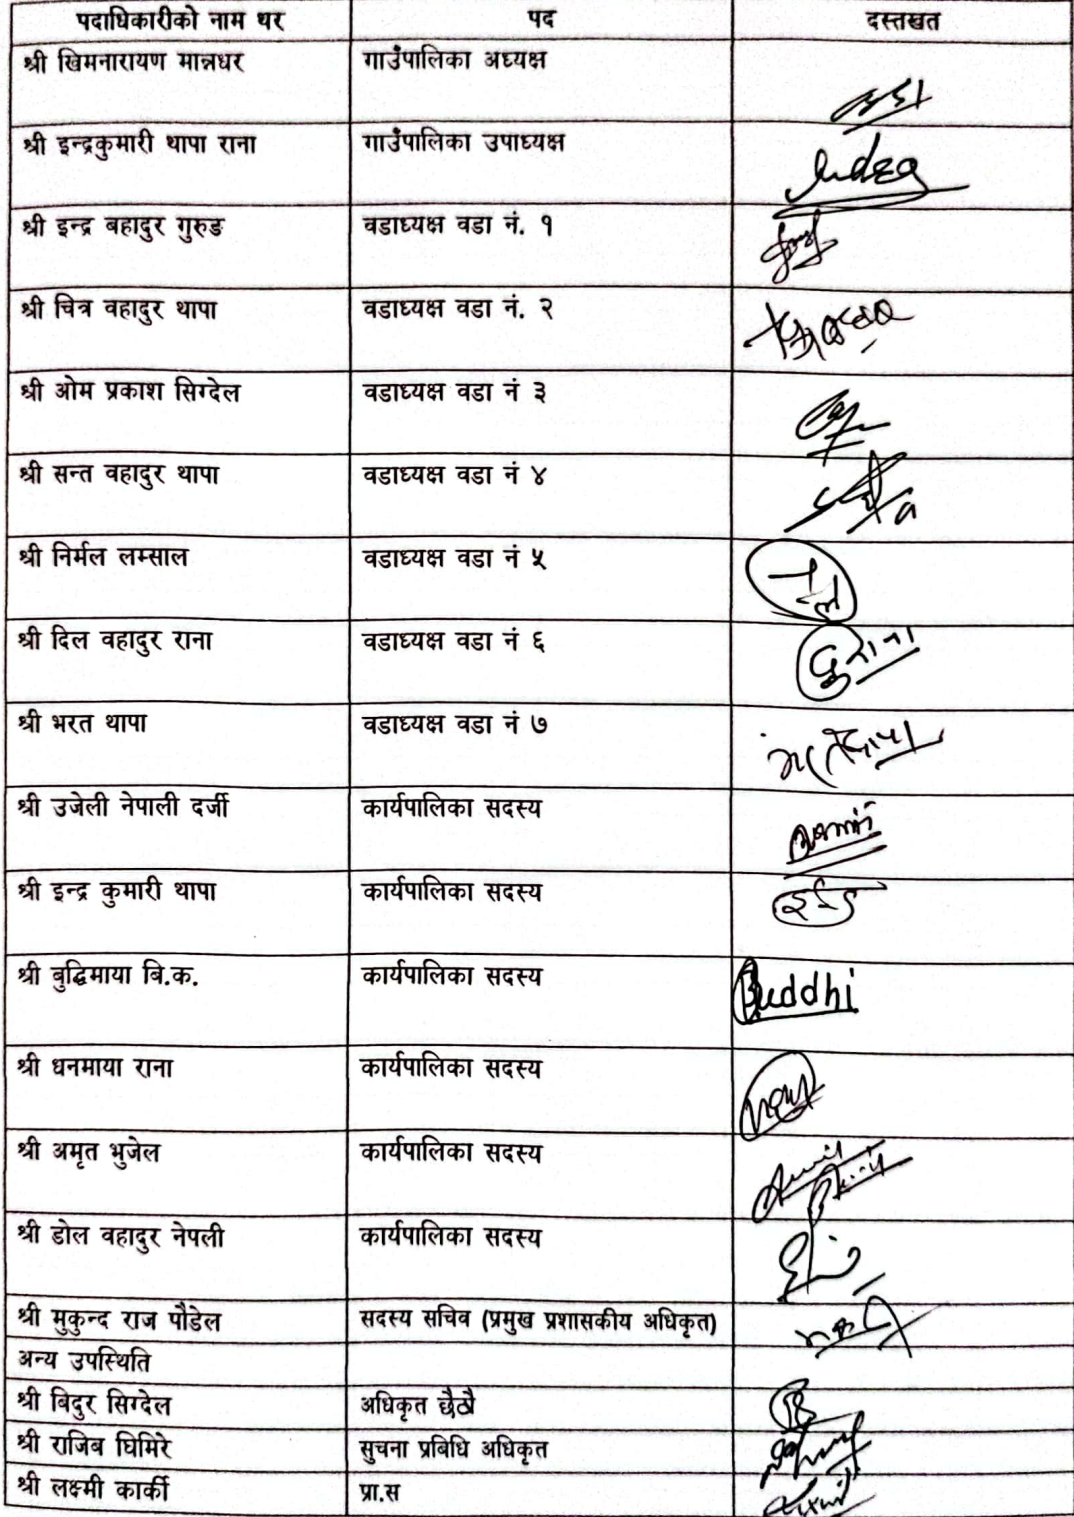 पदाधिकारीको नाम थर पद दस्तखत
श्री खिमनारायण मान्नधर गाउँपालिका अध्यक्ष
श्री इन्द्रकुमारी थापा राना गाउँपालिका उपाध्यक्ष
श्री इन्द्र बहादुर गुरुङ वडाध्यक्ष वडा नं. १
श्री चित्र वहादुर थापा वडाध्यक्ष वडा नं. २
श्री ओम प्रकाश सिग्देल वडाध्यक्ष वडा नं ३
श्री सन्त वहादुर थापा वडाध्यक्ष वडा नं ४
श्री निर्मल लम्साल वडाध्यक्ष वडा नं ५
श्री दिल वहादुर राना वडाध्यक्ष वडा नं ६
श्री भरत थापा वडाध्यक्ष वडा नं ७
श्री उजेली नेपाली दर्जी कार्यपालिका सदस्य
श्री इन्द्र कुमारी थापा कार्यपालिका सदस्य
श्री बुद्धिमाया बि.क. कार्यपालिका सदस्य Buddhi
श्री धनमाया राना कार्यपालिका सदस्य
श्री अमृत भुजेल कार्यपालिका सदस्य
श्री डोल वहादुर नेपली कार्यपालिका सदस्य
श्री मुकुन्द राज पौडेल सदस्य सचिव (प्रमुख प्रशासकीय अधिकृत)
अन्य उपस्थिति
श्री बिदुर सिग्देल अधिकृत छैठौ
श्री राजिब घिमिरे सुचना प्रबिधि अधिकृत
श्री लक्ष्मी कार्की प्रा.स